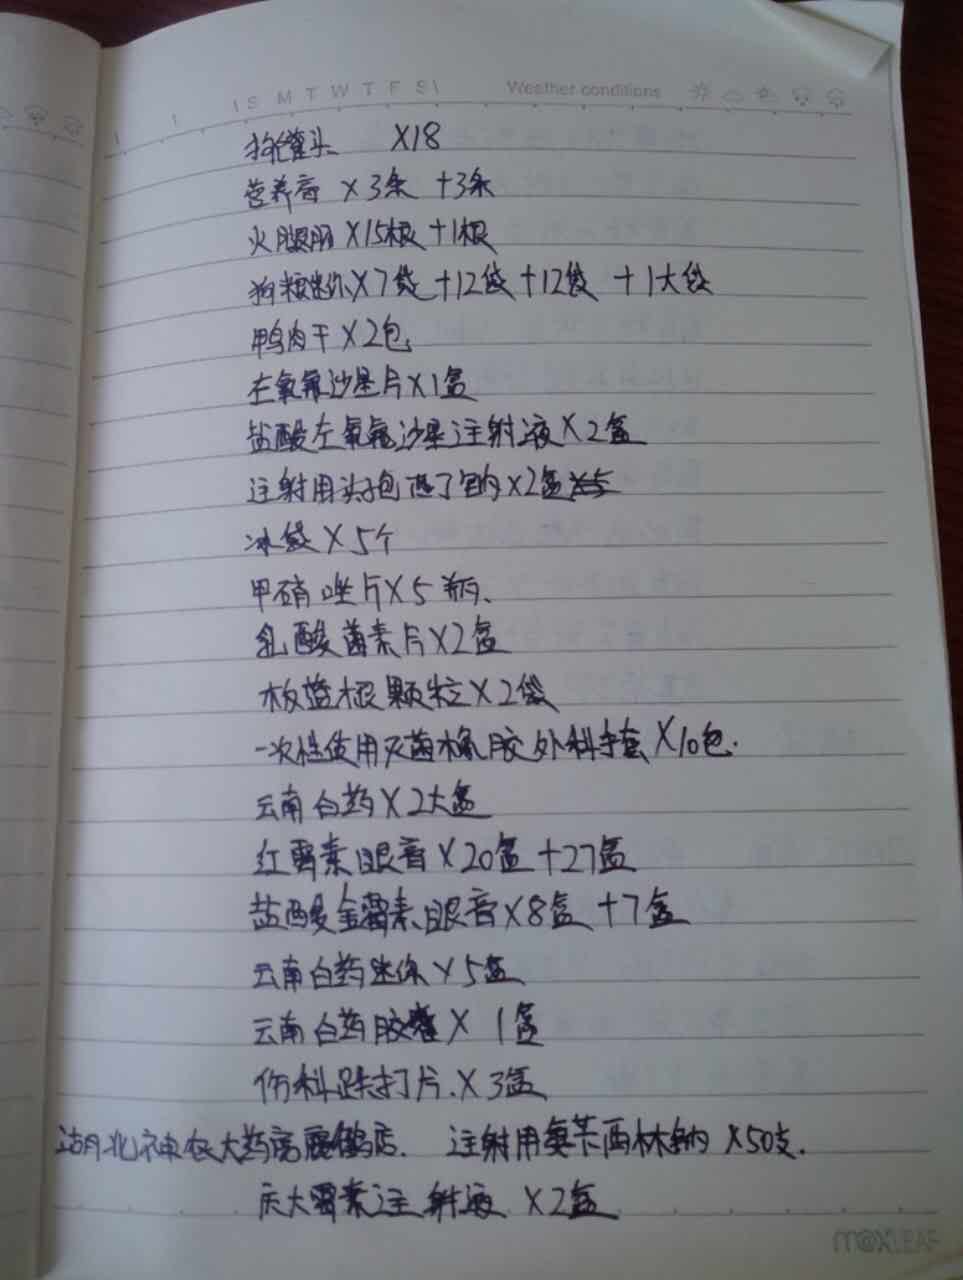 S M T W T F S Weather conditions
狗罐头 X18
营养膏 X3条 +3条
火腿肠 X15根 +1根
狗粮迷你X7袋 +12袋 +12袋 +1大袋
鸭肉干X2包
左氧氟沙星片X1盒
盐酸左氧氟沙星注射液X2盒
注射用头孢 钠X2盒
冰袋X5个
甲硝唑片X5瓶、
乳酸菌素片X2盒
板蓝根颗粒X2袋
一次性使用灭菌橡胶外科手套X10包.
云南白药X2大盒
红霉素眼膏X20盒+27盒
盐酸金霉素眼膏X8盒 +7盒
云南白药迷你X5盒
云南白药胶囊X 1盒
伤科跌打片.X3盒
湖北神农大药房 店. 注射用氨苄西林钠 X50支.
庆大霉素注射液 X2盒
m@XLEAF